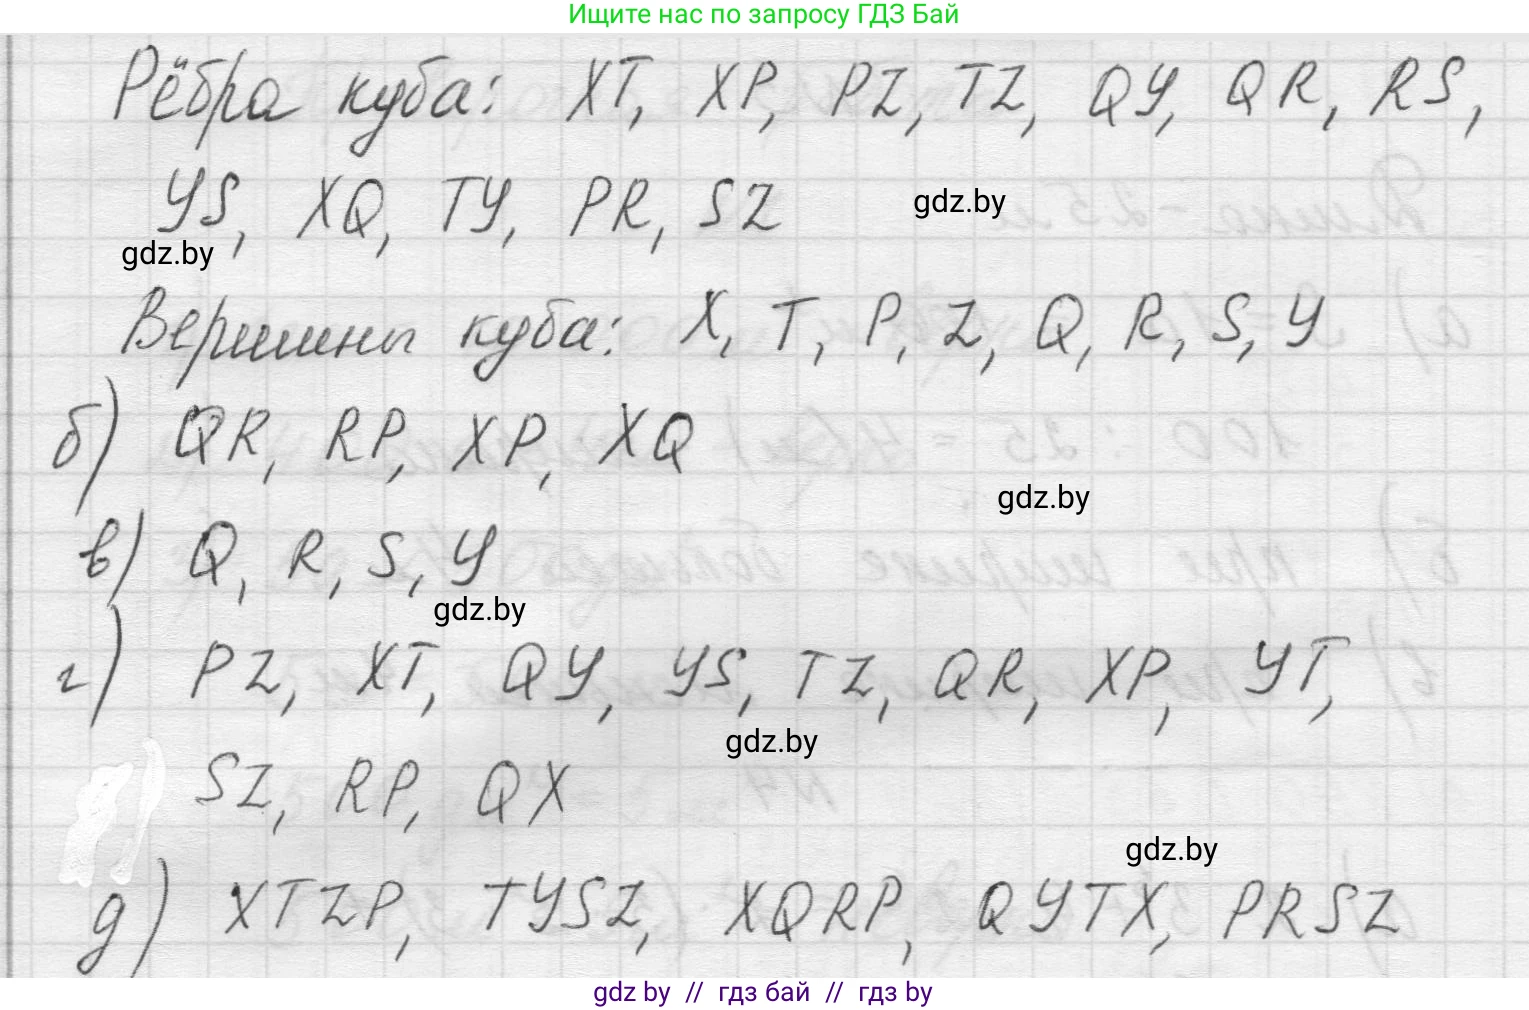 Ищите нас по запросу ГДЗ Бай
Рёбра куба: XT, XP, PZ, TZ, QY, QR, RS,
YS, XQ, TY, PR, SZ
gdz.by
gdz.by
Вершины куба: X, T, P, Z, Q, R, S, Y
б) QR, RP, XP, XQ
gdz.by
в) Q, R, S, Y
gdz.by
г) PZ, XT, QY, YS, TZ, QR, XP, YT,
gdz.by
SZ, RP, QX
gdz.by
д) XTZP, TYSZ, XQRP, QYTX, PRSZ
gdz by // гдз бай // гдз by